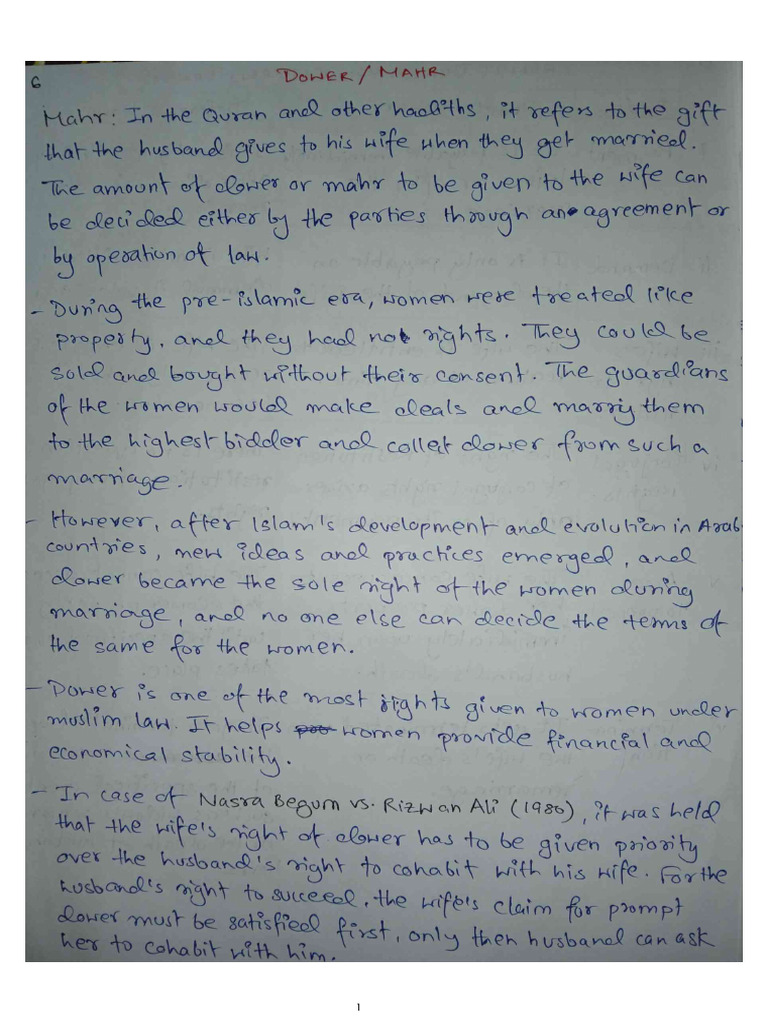 6
DOWER / MAHR
Mahr: In the Quran and other hadiths, it refers to the gift
that the husband gives to his wife when they get married.
The amount of dower or mahr to be given to the wife can
be decided either by the parties through an agreement or
by operation of law.
- During the pre-islamic era, women were treated like
property, and they had no rights. They could be
sold and bought without their consent. The guardians
of the women would make deals and marry them
to the highest bidder and collect dower from such a
marriage.
- However, after Islam's development and evolution in Arab
countries, new ideas and practices emerged, and
dower became the sole right of the women during
marriage, and no one else can decide the terms of
the same for the women.
- Dower is one of the most rights given to women under
muslim law. It helps women provide financial and
economical stability.
- In case of Nasra Begum vs. Rizwan Ali (1980), it was held
that the wife's right of dower has to be given priority
over the husband's right to cohabit with his wife. For the
husband's right to succeed, the wife's claim for prompt
dower must be satisfied first, only then husband can ask
her to cohabit with him.
1